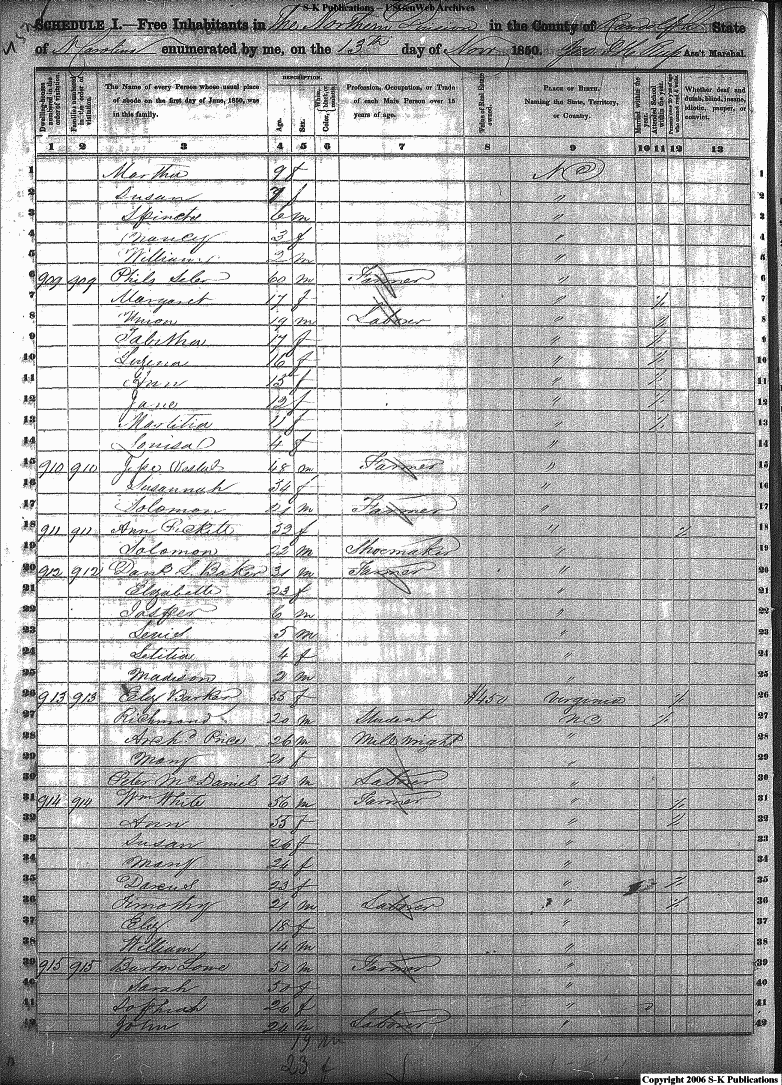 S-K Publications - USGenWeb Archives
SCHEDULE I.—Free Inhabitants in The Northern Division in the County of Randolph State
of N Carolina enumerated by me, on the 13th day of Novr 1850. Ass't Marshal.
DESCRIPTION.
Dwelling-houses numbered in the order of visitation. Families numbered in the order of visitation. The Name of every Person whose usual place of abode on the first day of June, 1850, was in this family. Age. Sex. Color, White, black, or mulatto. Profession, Occupation, or Trade of each Male Person over 15 years of age. Value of Real Estate owned. PLACE OF BIRTH. Naming the State, Territory, or Country. Married within the year. Attended School within the year. Persons over 20 y'rs of age who cannot read & write. Whether deaf and dumb, blind, insane, idiotic, pauper, or convict.
1 2 3 4 5 6 7 8 9 10 11 12 13
1 Martha 9 f NC 1
2 Susan 7 f " 2
3 6 m " 3
4 Nancy 3 f " 4
5 William 2 m " 5
6 909 909 60 m Farmer " 6
7 Margaret 17 f " / 7
8 19 m Laborer " / 8
9 Tabitha 17 f " / 9
10 16 f " / 10
11 13 f " / 11
12 Jane 12 f " / 12
13 11 f " / 13
14 Louisa 4 f " 14
15 910 910 48 m Farmer " 15
16 Susannah 54 f " 16
17 Solomon 21 m Farmer " 17
18 911 911 Ann 52 f " / 18
19 Solomon 22 m Shoemaker " 19
20 912 912 Danl S. Baker 31 m Farmer " 20
21 Elizabeth 23 f " 21
22 Jasper 6 m " 22
23 5 m " 23
24 Letitia 4 f " 24
25 Madison 2 m " 25
26 913 913 Barker 55 f $450 Virginia / 26
27 Richmond 20 m Student NC / 27
28 Archd Price 26 m Millwright " 28
29 Mary 21 f " 29
30 Peter McDaniel 23 m Laborer " 30
31 914 914 Wm White 56 m Farmer " / 31
32 Ann 55 f " / 32
33 Susan 26 f " 33
34 Mary 24 f " 34
35 23 f " / 35
36 Timothy 21 m Laborer " / 36
37 18 f " 37
38 William 14 m " 38
39 915 915 Burton Lowe 50 m Farmer " 39
40 Sarah 50 f " 40
41 Sophiah 26 f " 41
42 John 24 m Laborer " 42
19 m
23 f
Copyright 2006 S-K Publications